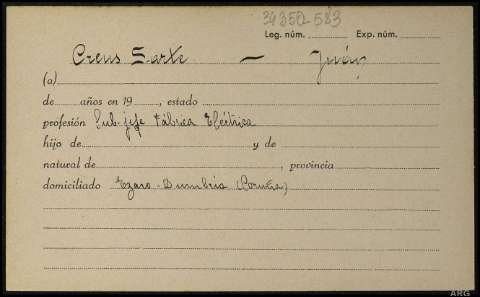 34350-583
Leg. núm. Exp. núm.
Creus Sarte — Juán
(a)
de años en 19 , estado
profesión Sub-jefe Fábrica Eléctrica
hijo de y de
natural de , provincia
domiciliado Ezaro-Dumbria (Coruña)
ARG